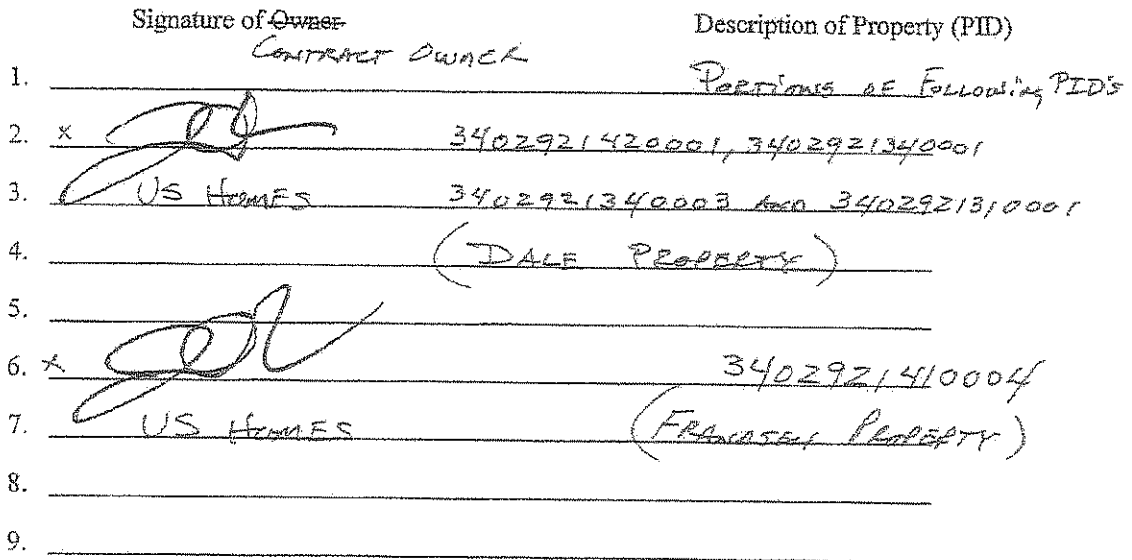 Signature of Owner Description of Property (PID)
CONTRACT OWNER
1. PORTIONS OF FOLLOWING PID'S
2. x 3402921420001, 3402921340001
3. US HOMES 3402921340003 AND 3402921310001
4. (DALE PROPERTY)
5.
6. x 3402921410004
7. US HOMES (FRANDSEN PROPERTY)
8.
9.